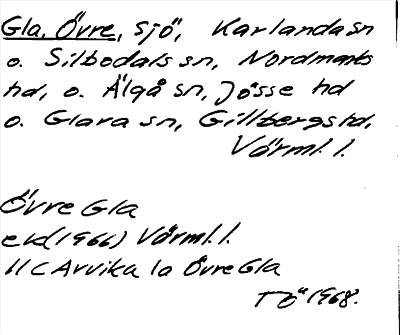 Gla, Övre, sjö, Karlanda sn
o. Silbodals sn, Nordmarks
hd, o. Älgå sn, Jösse hd
o. Glava sn, Gillbergs hd,
Värml. l.
Övre Gla
ek(1966) Värml. l.
11C Arvika 1a Övre Gla
TÖ 1968.